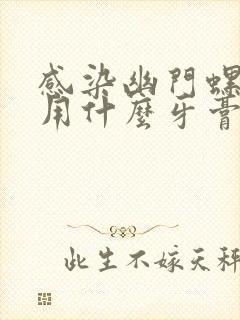 感染幽門螺
用什麼牙膏
此生不嫁天秤